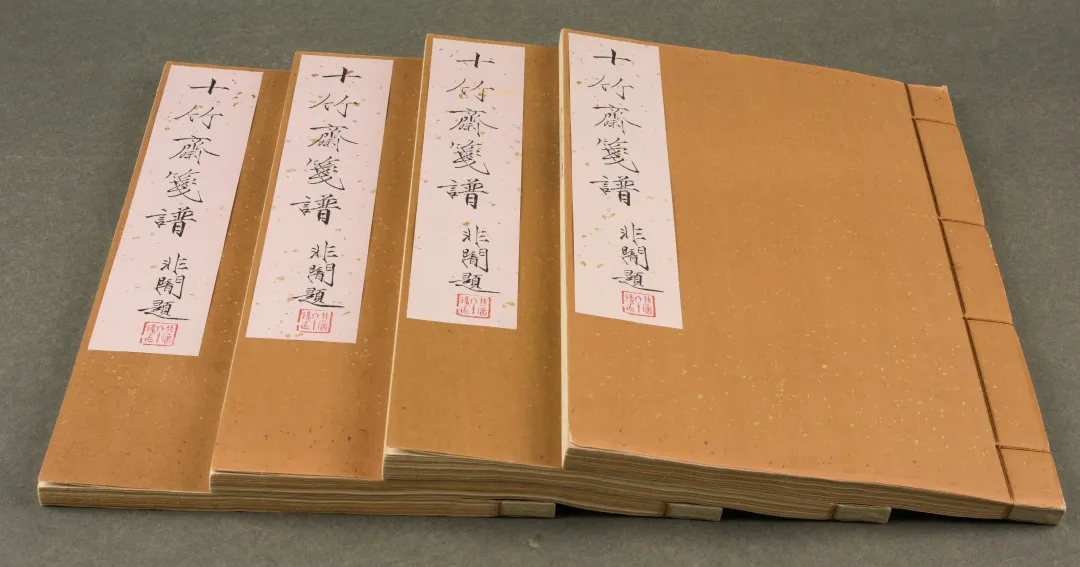 十竹齋箋譜 非闇題
十竹齋箋譜 非闇題
十竹齋箋譜 非闇題
十竹齋箋譜 非闇題